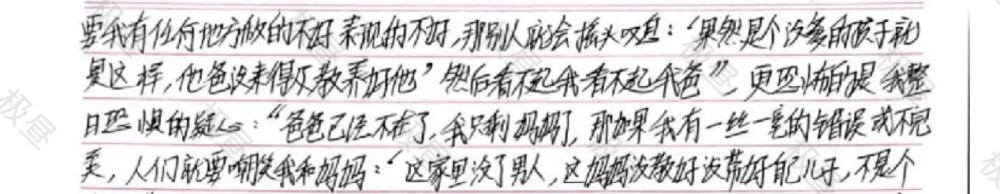 要我有任何地方做的不好表现的不好,那别人就会摇头叹息:“果然是个没爹的孩子就
是这样,他爸没来得及教养好他”然后看不起我看不起我爸”,更恐怖的是我整
日恐惧的疑心:“爸爸已经不在了,我只剩妈妈了,那如果我有一丝一毫的错误或不完
美,人们就要嘲笑我和妈妈:“这家里没了男人,这妈妈没教好没带好自己儿子,不是个
极昼